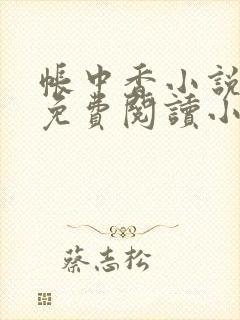 帳中香小說
免費閱讀小
蔡志松